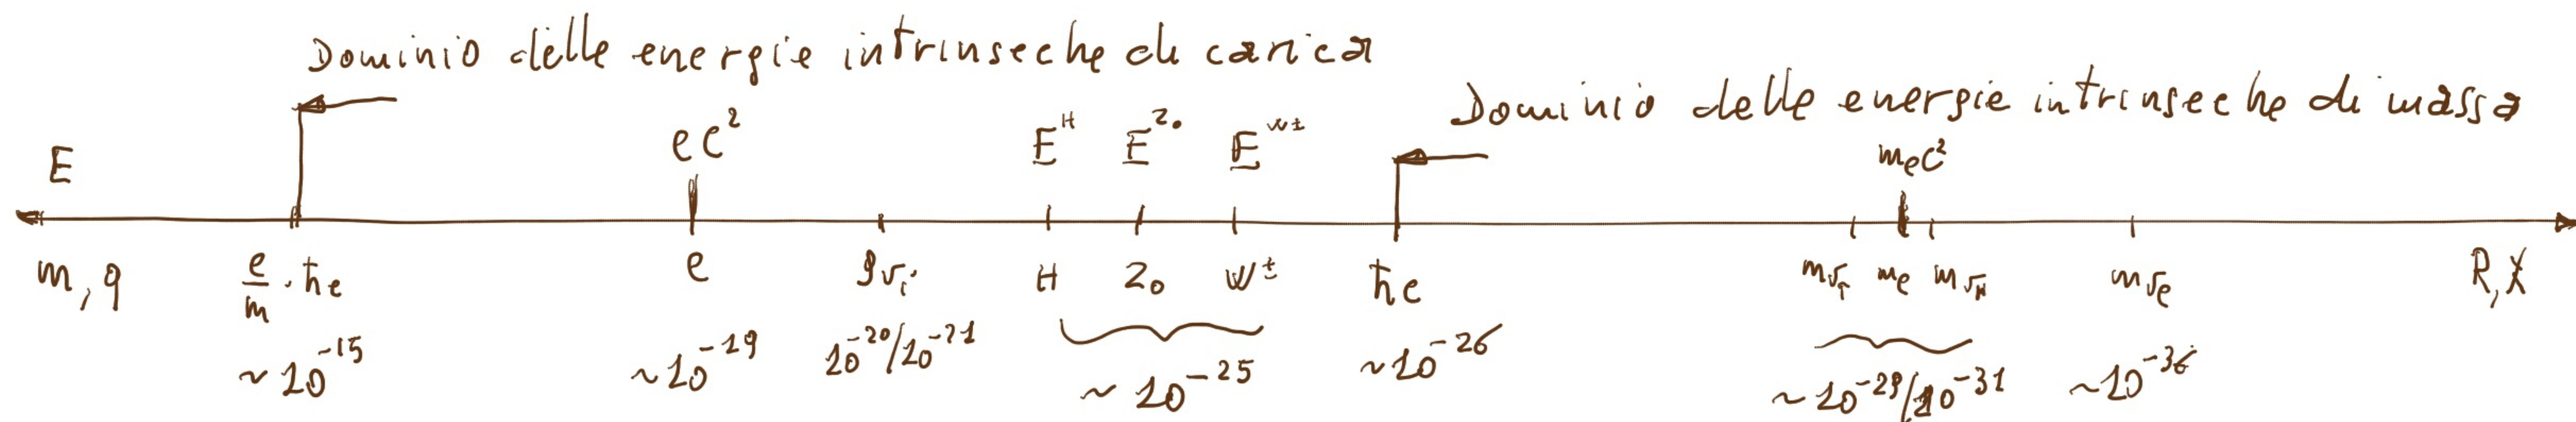 Dominio delle energie intrinseche di carica
Dominio delle energie intrinseche di massa
E eC² E^H E^Z₀ E^W± mₑC²
m, q e/m · ħc e H Z₀ W± ħc mₑ R, X
~10⁻¹⁵ ~10⁻¹⁹ 10⁻²⁰/10⁻²¹ ~10⁻²⁵ ~10⁻²⁶ ~10⁻²⁹/10⁻³¹ ~10⁻³⁶